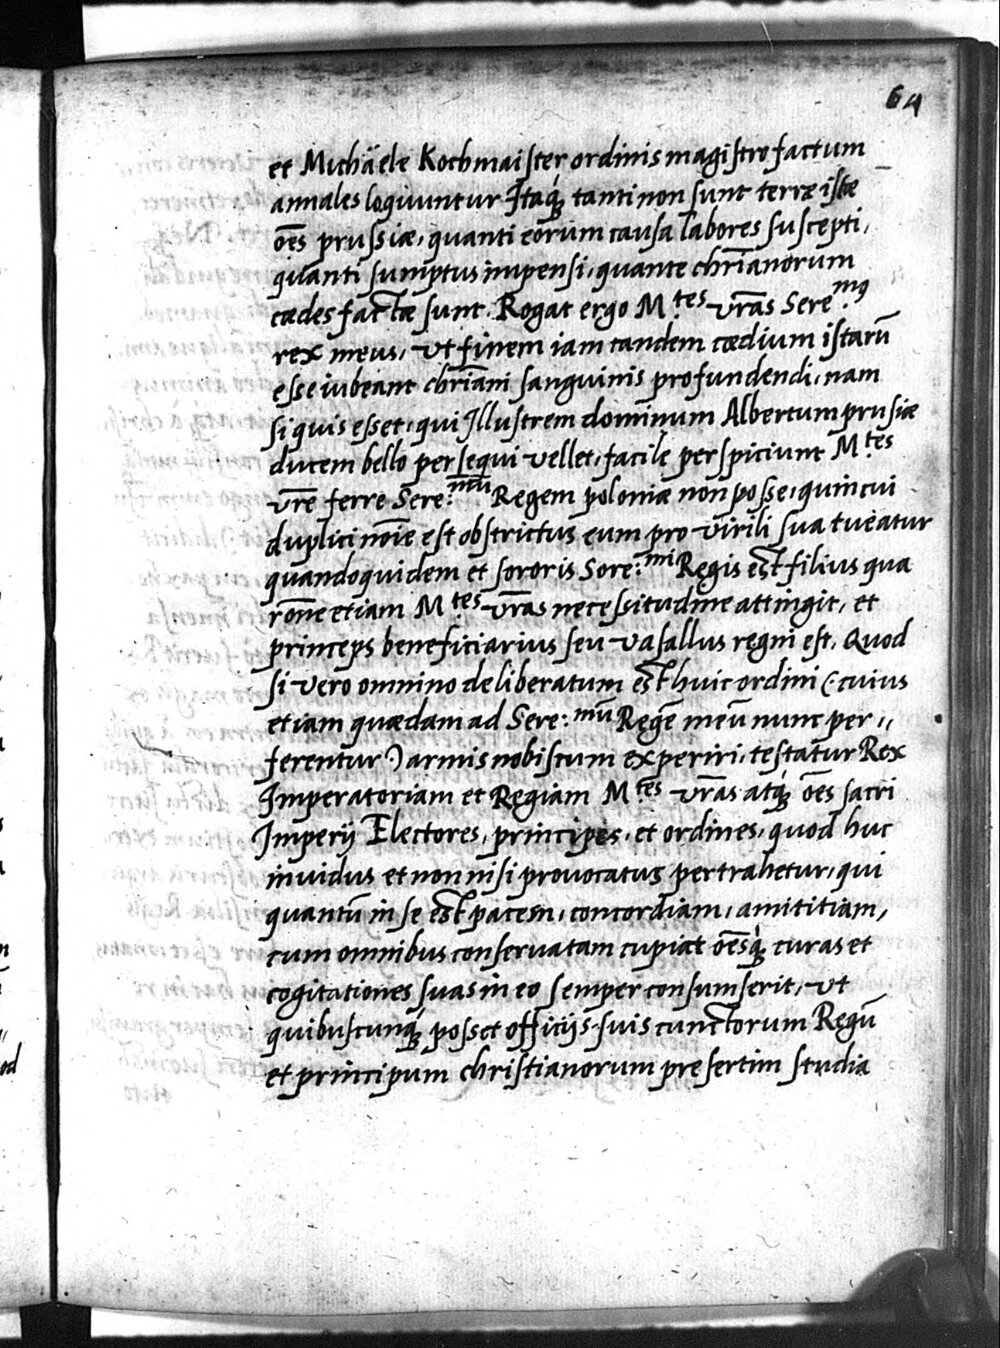 64
et Michäele Kochmaister ordinis magistro factum
annales loquuntur Itaq́ꝫ tanti non sunt terræ istæ
oẽs prussiæ, quanti eorum causa labores suscepti,
quanti sumptus impensi, quante chrĩanorum
cædes factæ sunt. Rogat ergo M.tes vr̃as Sere.mꝰ
rex meus, vt finem iam tandem cædium istarũ
esse iubeant chrĩani sanguinis profundendi, nam
si quis esset, qui Illustrem dominum Albertum prusiæ
ducem bello persequi vellet, facile perspiciunt M.tes
vr̃e ferre Sere.mũ Regem poloniæ non posse, quin cui
duplici noĩe est obstrictus eum pro virili sua tueatur
quandoquidem et sororis Sere:mi Regis est filius qua
rõne etiam M.tes vr̃as necessitudine attingit, et
princeps beneficiarius seu vasallus regni est, Quod
si vero omnino deliberatum est huic ordini (: cuius
etiam quædam ad Sere:mũ Regẽ meũ nunc per,,
ferentur :) armis nobiscum experiri, testatur Rex
Imperatoriam et Regiam M.tes vr̃as atq́ꝫ oẽs sacri
Imperij Electores, principes, et ordines, quod huc
inuidus et non nisi prouocatus pertrahetur, qui
quantũ in se est pacem, concordiam, amicitiam,
cum omnibus conseruatam cupiat oẽsq́ꝫ curas et
cogitationes suas in eo semper consumserit, vt
quibuscunq́ꝫ posset officijs suis cunctorum Regũ
et principum christianorum presertim studia